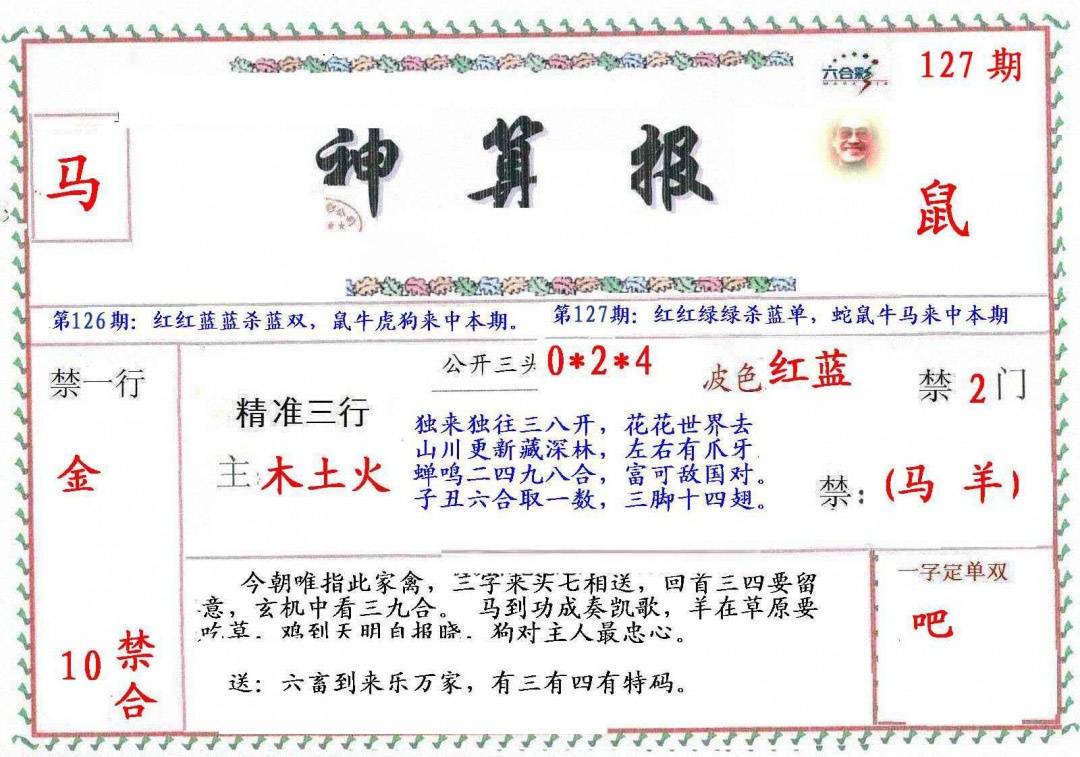 六合彩
127 期
马
神算报
鼠
第126期：红红蓝蓝杀蓝双，鼠牛虎狗来中本期。
第127期：红红绿绿杀蓝单，蛇鼠牛马来中本期
禁一行
金
10 禁合
精准三行
主:木土火
公开三头 0*2*4
波色 红蓝
独来独往三八开，花花世界去
山川更新藏深林，左右有爪牙
蝉鸣二四九八合，富可敌国对。
子丑六合取一数，三脚十四翅。
禁 2 门
禁：(马 羊)
今朝唯指此家禽，三字来头七相送，回首三四要留
意，玄机中看三九合。 马到功成奏凯歌，羊在草原要
吃草，鸡到天明自报晓，狗对主人最忠心。
送：六畜到来乐万家，有三有四有特码。
一字定单双
吧